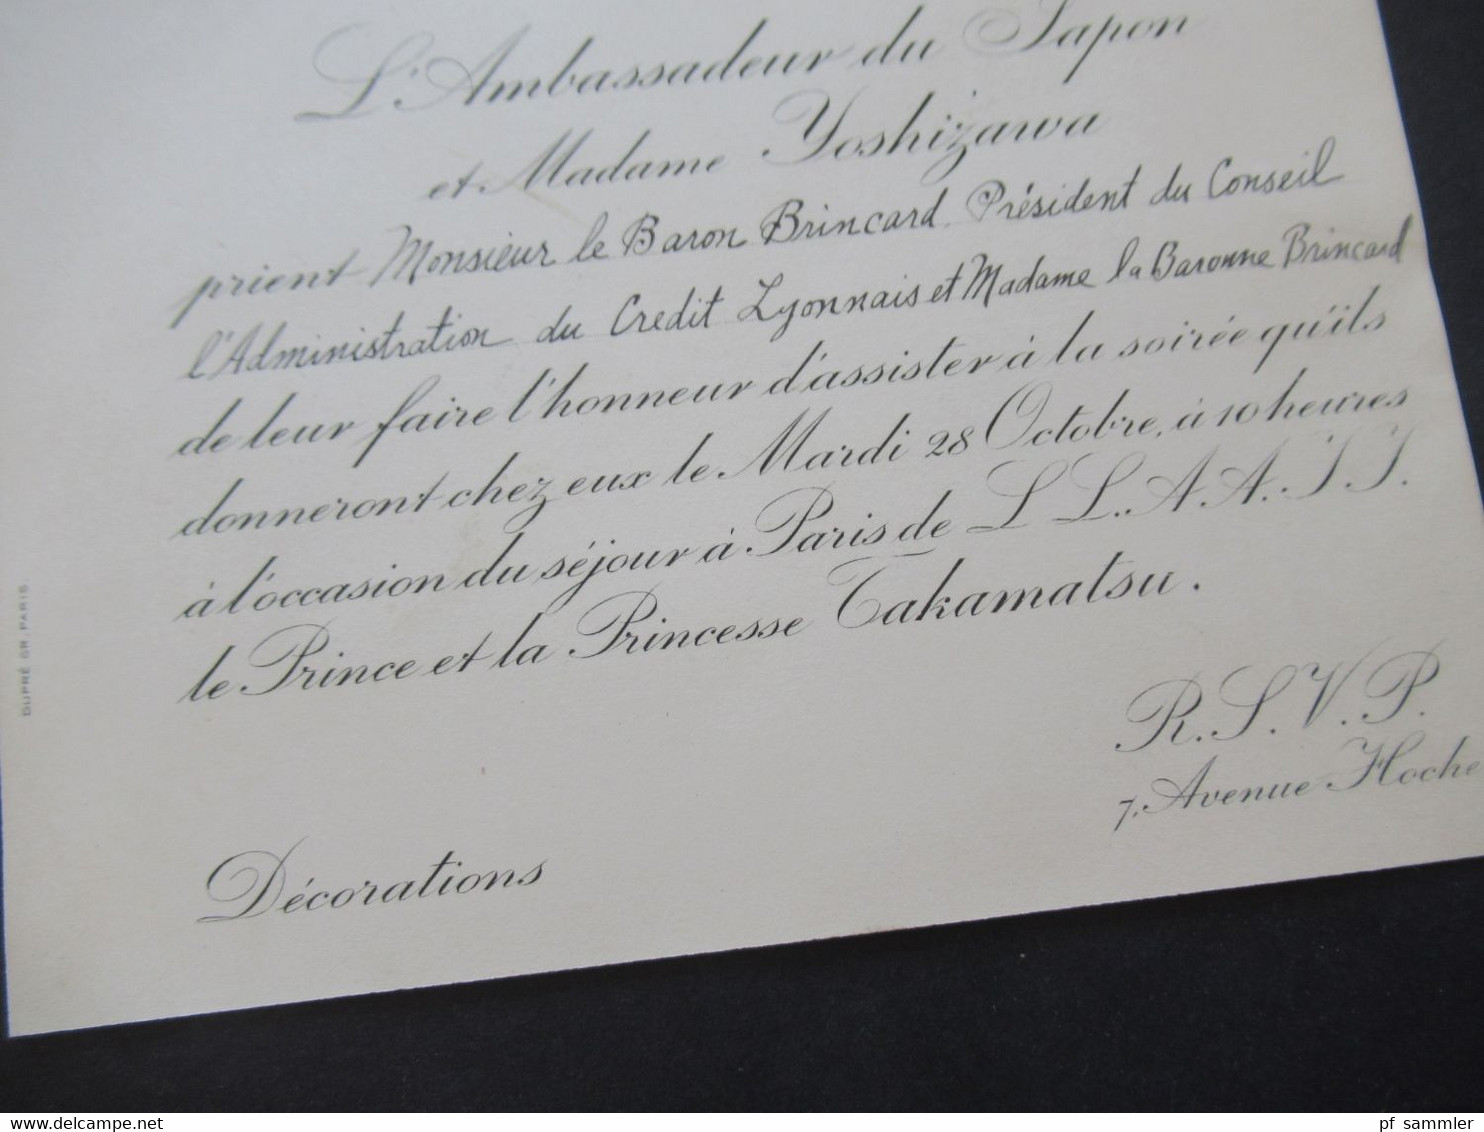 L'Ambassadeur du Japon
et Madame Yoshizawa
prient Monsieur le Baron Brincard, Président du Conseil
l'Administration du Credit Lyonnais et Madame la Baronne Brincard
de leur faire l'honneur d'assister à la soirée qu'ils
donneront chez eux le Mardi 28 Octobre, à 10 heures
à l'occasion du séjour à Paris de L L. A A. I I.
le Prince et la Princesse Takamatsu.
R. S. V. P.
7, Avenue Hoche
Décorations
DUPRÉ GR. PARIS
www.delcampe.net
pf_sammler